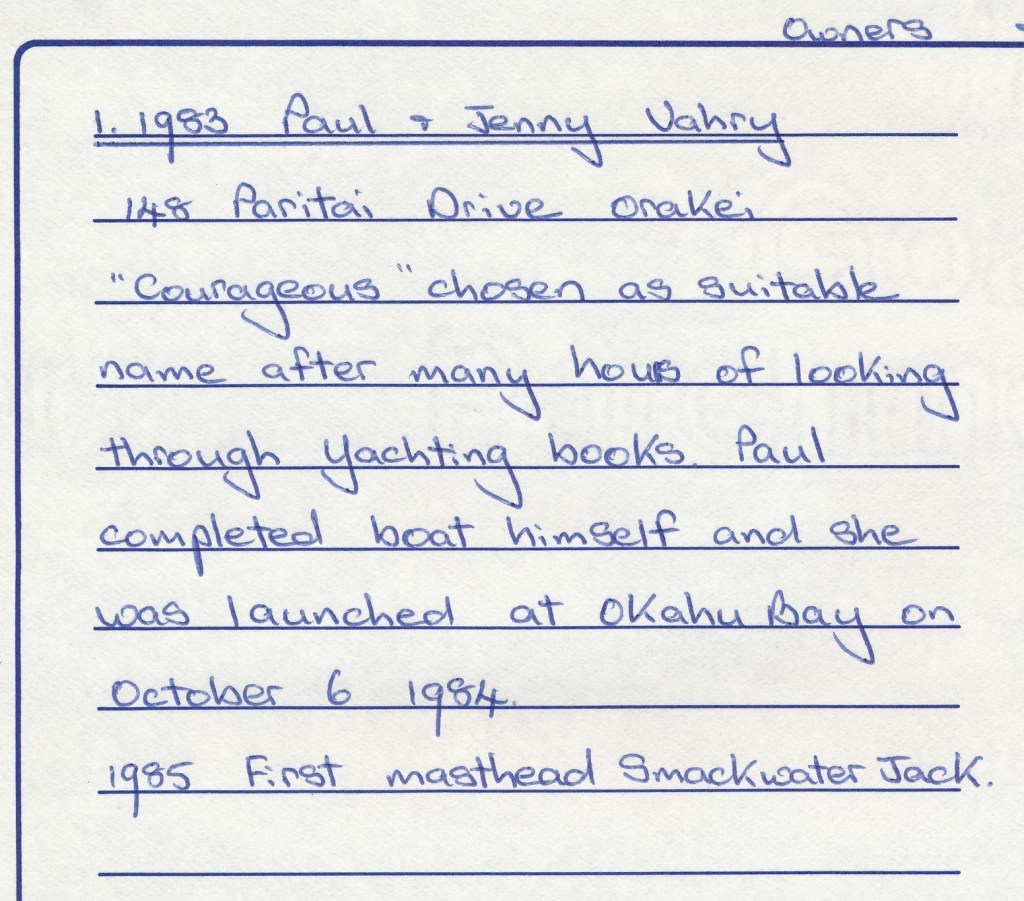 Owners
1. 1983 Paul & Jenny Vahry
148 Paritai Drive Orakei
"Courageous" chosen as suitable
name after many hours of looking
through Yachting books. Paul
completed boat himself and she
was launched at Okahu Bay on
October 6 1984.
1985 First masthead Smackwater Jack.